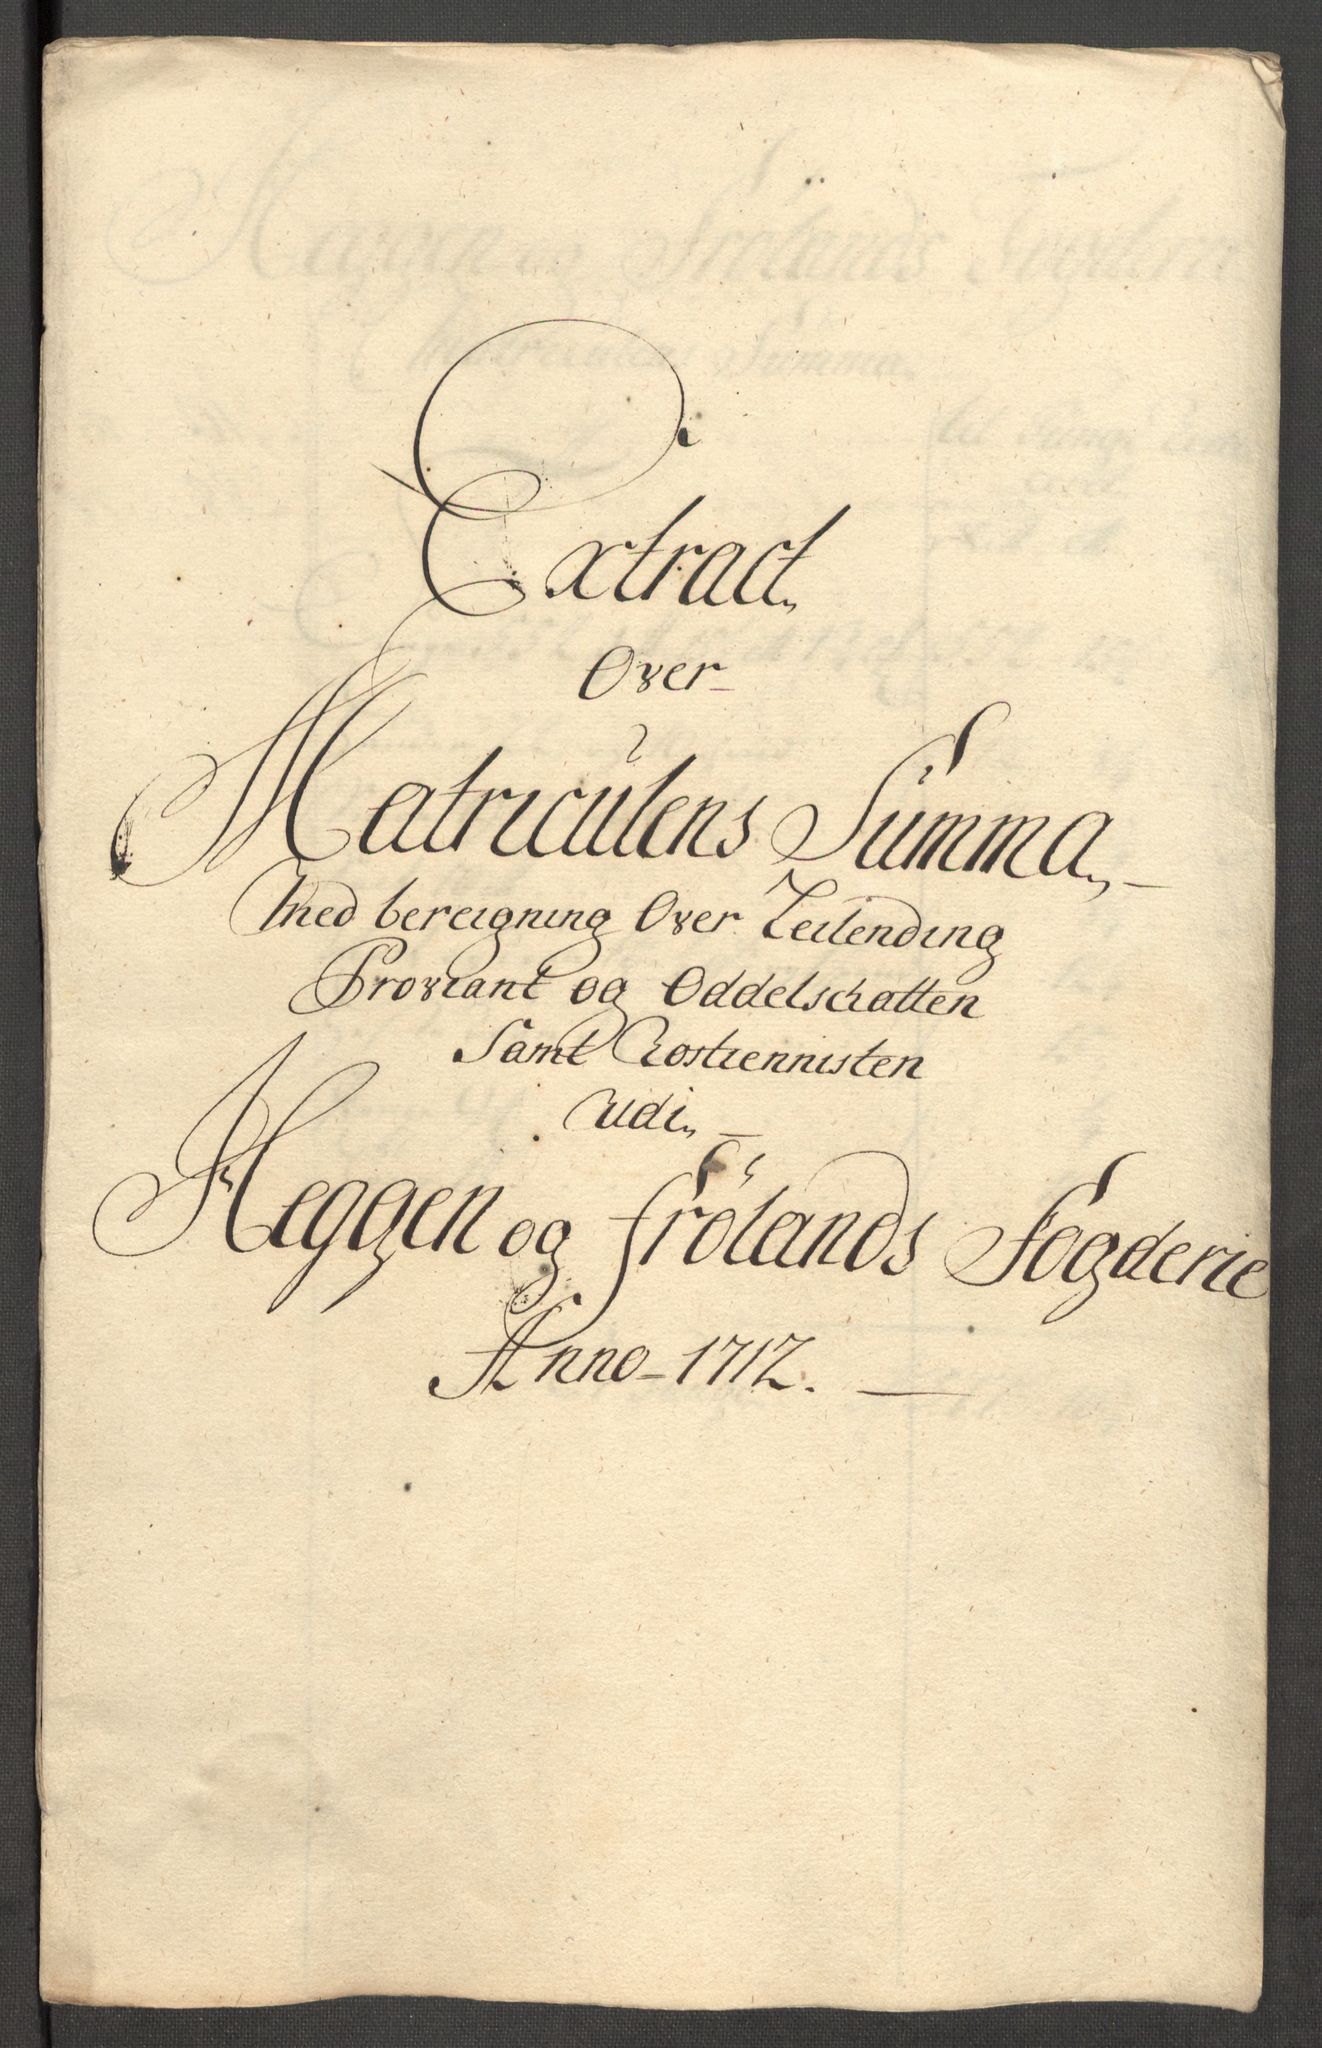 Extract
Over
Matriculens Summa
Med bereigning Over Leilending
Proviant og Oddelschatten
Samt Rostiennisten
udi
Heggen og Frölands Fogderie
Anno 1712.